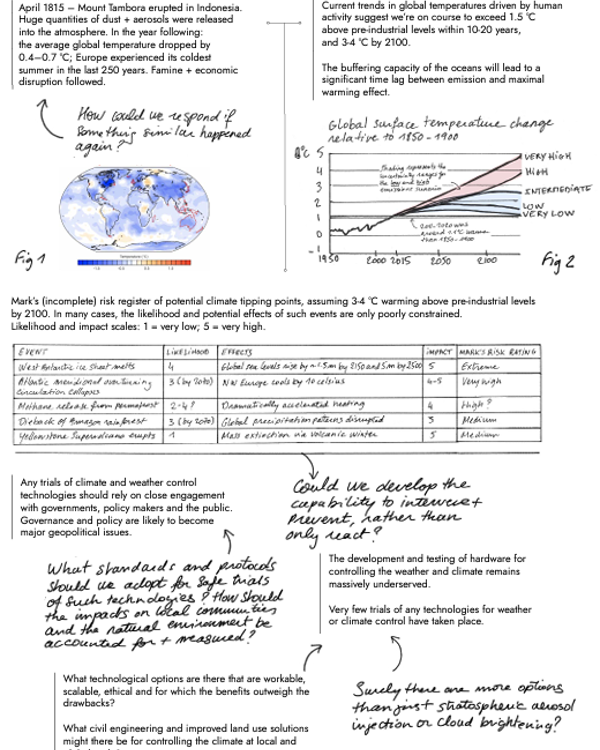 April 1815 – Mount Tambora erupted in Indonesia.
Huge quantities of dust + aerosols were released
into the atmosphere. In the year following:
the average global temperature dropped by
0.4–0.7 °C; Europe experienced its coldest
summer in the last 250 years. Famine + economic
disruption followed.
How could we respond if
something similar happened
again?
Fig 1
Current trends in global temperatures driven by human
activity suggest we're on course to exceed 1.5 °C
above pre-industrial levels within 10-20 years,
and 3-4 °C by 2100.
The buffering capacity of the oceans will lead to a
significant time lag between emission and maximal
warming effect.
Global surface temperature change
relative to 1850-1900
°C
5
4
3
2
1
0
-1
1950 2000 2015 2050 2100
Shading represents the
uncertainty ranges for
the low and high
emissions scenarios
VERY HIGH
HIGH
INTERMEDIATE
LOW
VERY LOW
than 1850-1900
Fig 2
Mark's (incomplete) risk register of potential climate tipping points, assuming 3-4 °C warming above pre-industrial levels
by 2100. In many cases, the likelihood and potential effects of such events are only poorly constrained.
Likelihood and impact scales: 1 = very low; 5 = very high.
EVENT LIKELIHOOD EFFECTS IMPACT MARK'S RISK RATING
West Antarctic ice sheet melts 4 Global sea levels rise by ~1.5m by 2150 and 5m by 2500 5 Extreme
Atlantic meridional overturning circulation collapses 3 (by 2070) NW Europe cools by 10 celsius 4-5 Very high
Methane release from permafrost 2-4? Dramatically accelerated heating 4 High?
Dieback of Amazon rainforest 3 (by 2070) Global precipitation patterns disrupted 3 Medium
Yellowstone Supervolcano erupts 1 Mass extinction via volcanic winter 5 Medium
Any trials of climate and weather control
technologies should rely on close engagement
with governments, policy makers and the public.
Governance and policy are likely to become
major geopolitical issues.
Could we develop the
capability to intervene +
prevent, rather than
only react?
What standards and protocols
should we adopt for safe trials
of such technologies? How should
the impacts on local communities
and the natural environment be
accounted for + measured?
The development and testing of hardware for
controlling the weather and climate remains
massively underserved.
Very few trials of any technologies for weather
or climate control have taken place.
What technological options are there that are workable,
scalable, ethical and for which the benefits outweigh the
drawbacks?
What civil engineering and improved land use solutions
might there be for controlling the climate at local and
Surely there are more options
than just stratospheric aerosol
injection or cloud brightening?